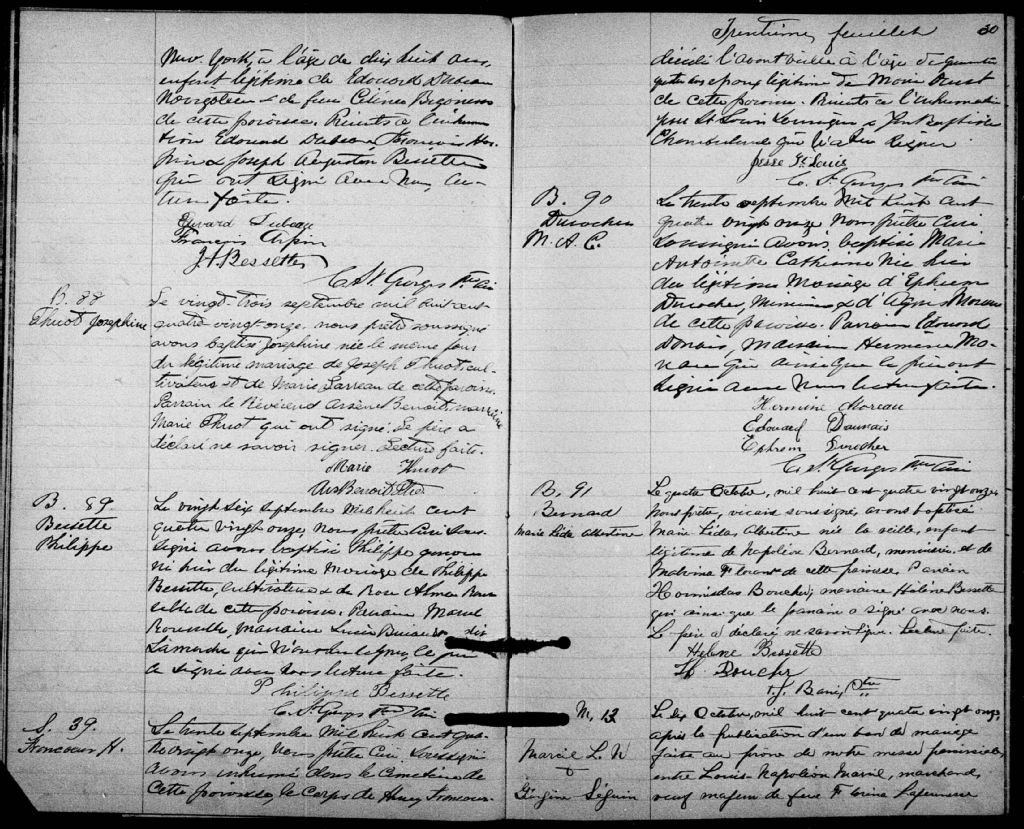 New York, à l'âge de dix huit ans,
enfant légitime de Edouard Dubeau
Navigateur & de feue
de cette paroisse. Présents à l'inhuma-
tion Edouard Dubeau, François Ar-
pin & Joseph Augustin Bessette
qui ont signé avec nous, lec-
ture faite.
Edouard Dubeau
François Arpin
J A Bessette
C. St. Georges Ptre Curé
B. 88
Thuot Josephine
Le vingt-trois septembre mil huit cent
quatre vingt-onze, nous prêtre soussigné
avons baptisé Josephine née le même jour
du légitime mariage de Joseph Thuot, cul-
tivateur et de Marie Larreau de cette paroisse.
Parrain le Révérend Arsène Benoit, marraine
Marie Thuot qui ont signé. Le père a
déclaré ne savoir signer. Lecture faite.
Marie Thuot
Ars Benoit Ptre
B. 89.
Bessette
Philippe
Le vingt six septembre Mil huit cent
quatre vingt onze, Nous prêtre Curé Sous-
signé avons baptisé Philippe
né hier du légitime Mariage de Philippe
Bessette, Cultivateur & de Rose Alma Rou-
de cette paroisse. Parrain
marraine Lucie
Lamarche qui le père
a signé avec nous lecture faite.
Philippe Bessette
C. St Georges Ptre Curé
S. 39.
Francoeur H.
Le trente septembre Mil huit Cent qua-
tre vingt onze, Nous prêtre Curé Soussigné
avons inhumé dans le Cimetière de
Cette paroisse, le Corps de Henry Francoeur
Trentième feuillet 30
décédé l'avant veille à l'âge de quarante
quatre ans époux légitime de Marie
de cette paroisse. Présents à l'inhumation
St Louis & Jn Baptiste
qui
Jesse St. Louis
C. St. Georges Ptre Curé
B. 90
Durocher
M. A. C.
Le trente septembre Mil huit cent
quatre vingt onze Nous prêtre Curé
Soussigné avons baptisé Marie
Antoinette Catherine Née hier
du légitime Mariage d'Ephrem
Durocher, Menuisier & d' Moreau
de cette paroisse. Parrain Edouard
Marraine Hermine Mo-
reau qui ainsi que le père ont
signé avec Nous lecture faite.
Hermine Moreau
Edouard Dauvais
Ephrem Durocher
C. St Georges Ptre Curé
B. 91
Bernard
Marie Léda Albertine
Le quatre Octobre, mil huit cent quatre vingt onze,
Nous prêtre, vicaire soussigné, avons baptisé
Marie Léda Albertine née la veille, enfant
légitime de Napoléon Bernard, menuisier, et de
Malvina de cette paroisse. Parrain
Hormisdas Boucher; marraine Hélène Bessette
qui ainsi que le parrain a signé avec nous.
Le père a déclaré ne savoir signer. Lecture faite.
Helène Bessette
H. Boucher
Ptre
M. 13
L. N
&
Séguin
Le dix Octobre, mil huit cent quatre vingt onze,
après la publication d'un ban de mariage
faite au prône de notre messe paroissiale,
entre Louis-Napoléon marchand,
veuf majeur de feue